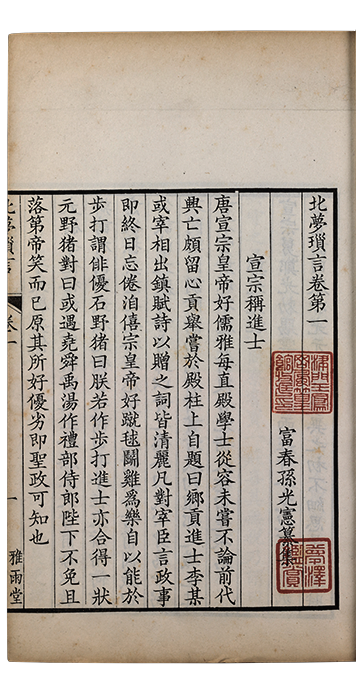 北夢瑣言卷第一
富春孫光憲纂集
宣宗稱進士
唐宣宗皇帝好儒雅每直殿學士從容未嘗不論前代
興亡頗留心貢舉嘗於殿柱上自題曰鄉貢進士李某
或宰相出鎮賦詩以贈之詞皆清麗凡對宰臣言政事
即終日忘倦洎僖宗皇帝好蹴毬鬬雞爲樂自以能於
步打謂俳優石野猪曰朕若作步打進士亦合得一狀
元野猪對曰或遇堯舜禹湯作禮部侍郎陛下不免且
落第帝笑而已原其所好優劣即聖政可知也
北夢瑣言
卷一
一
雅雨堂